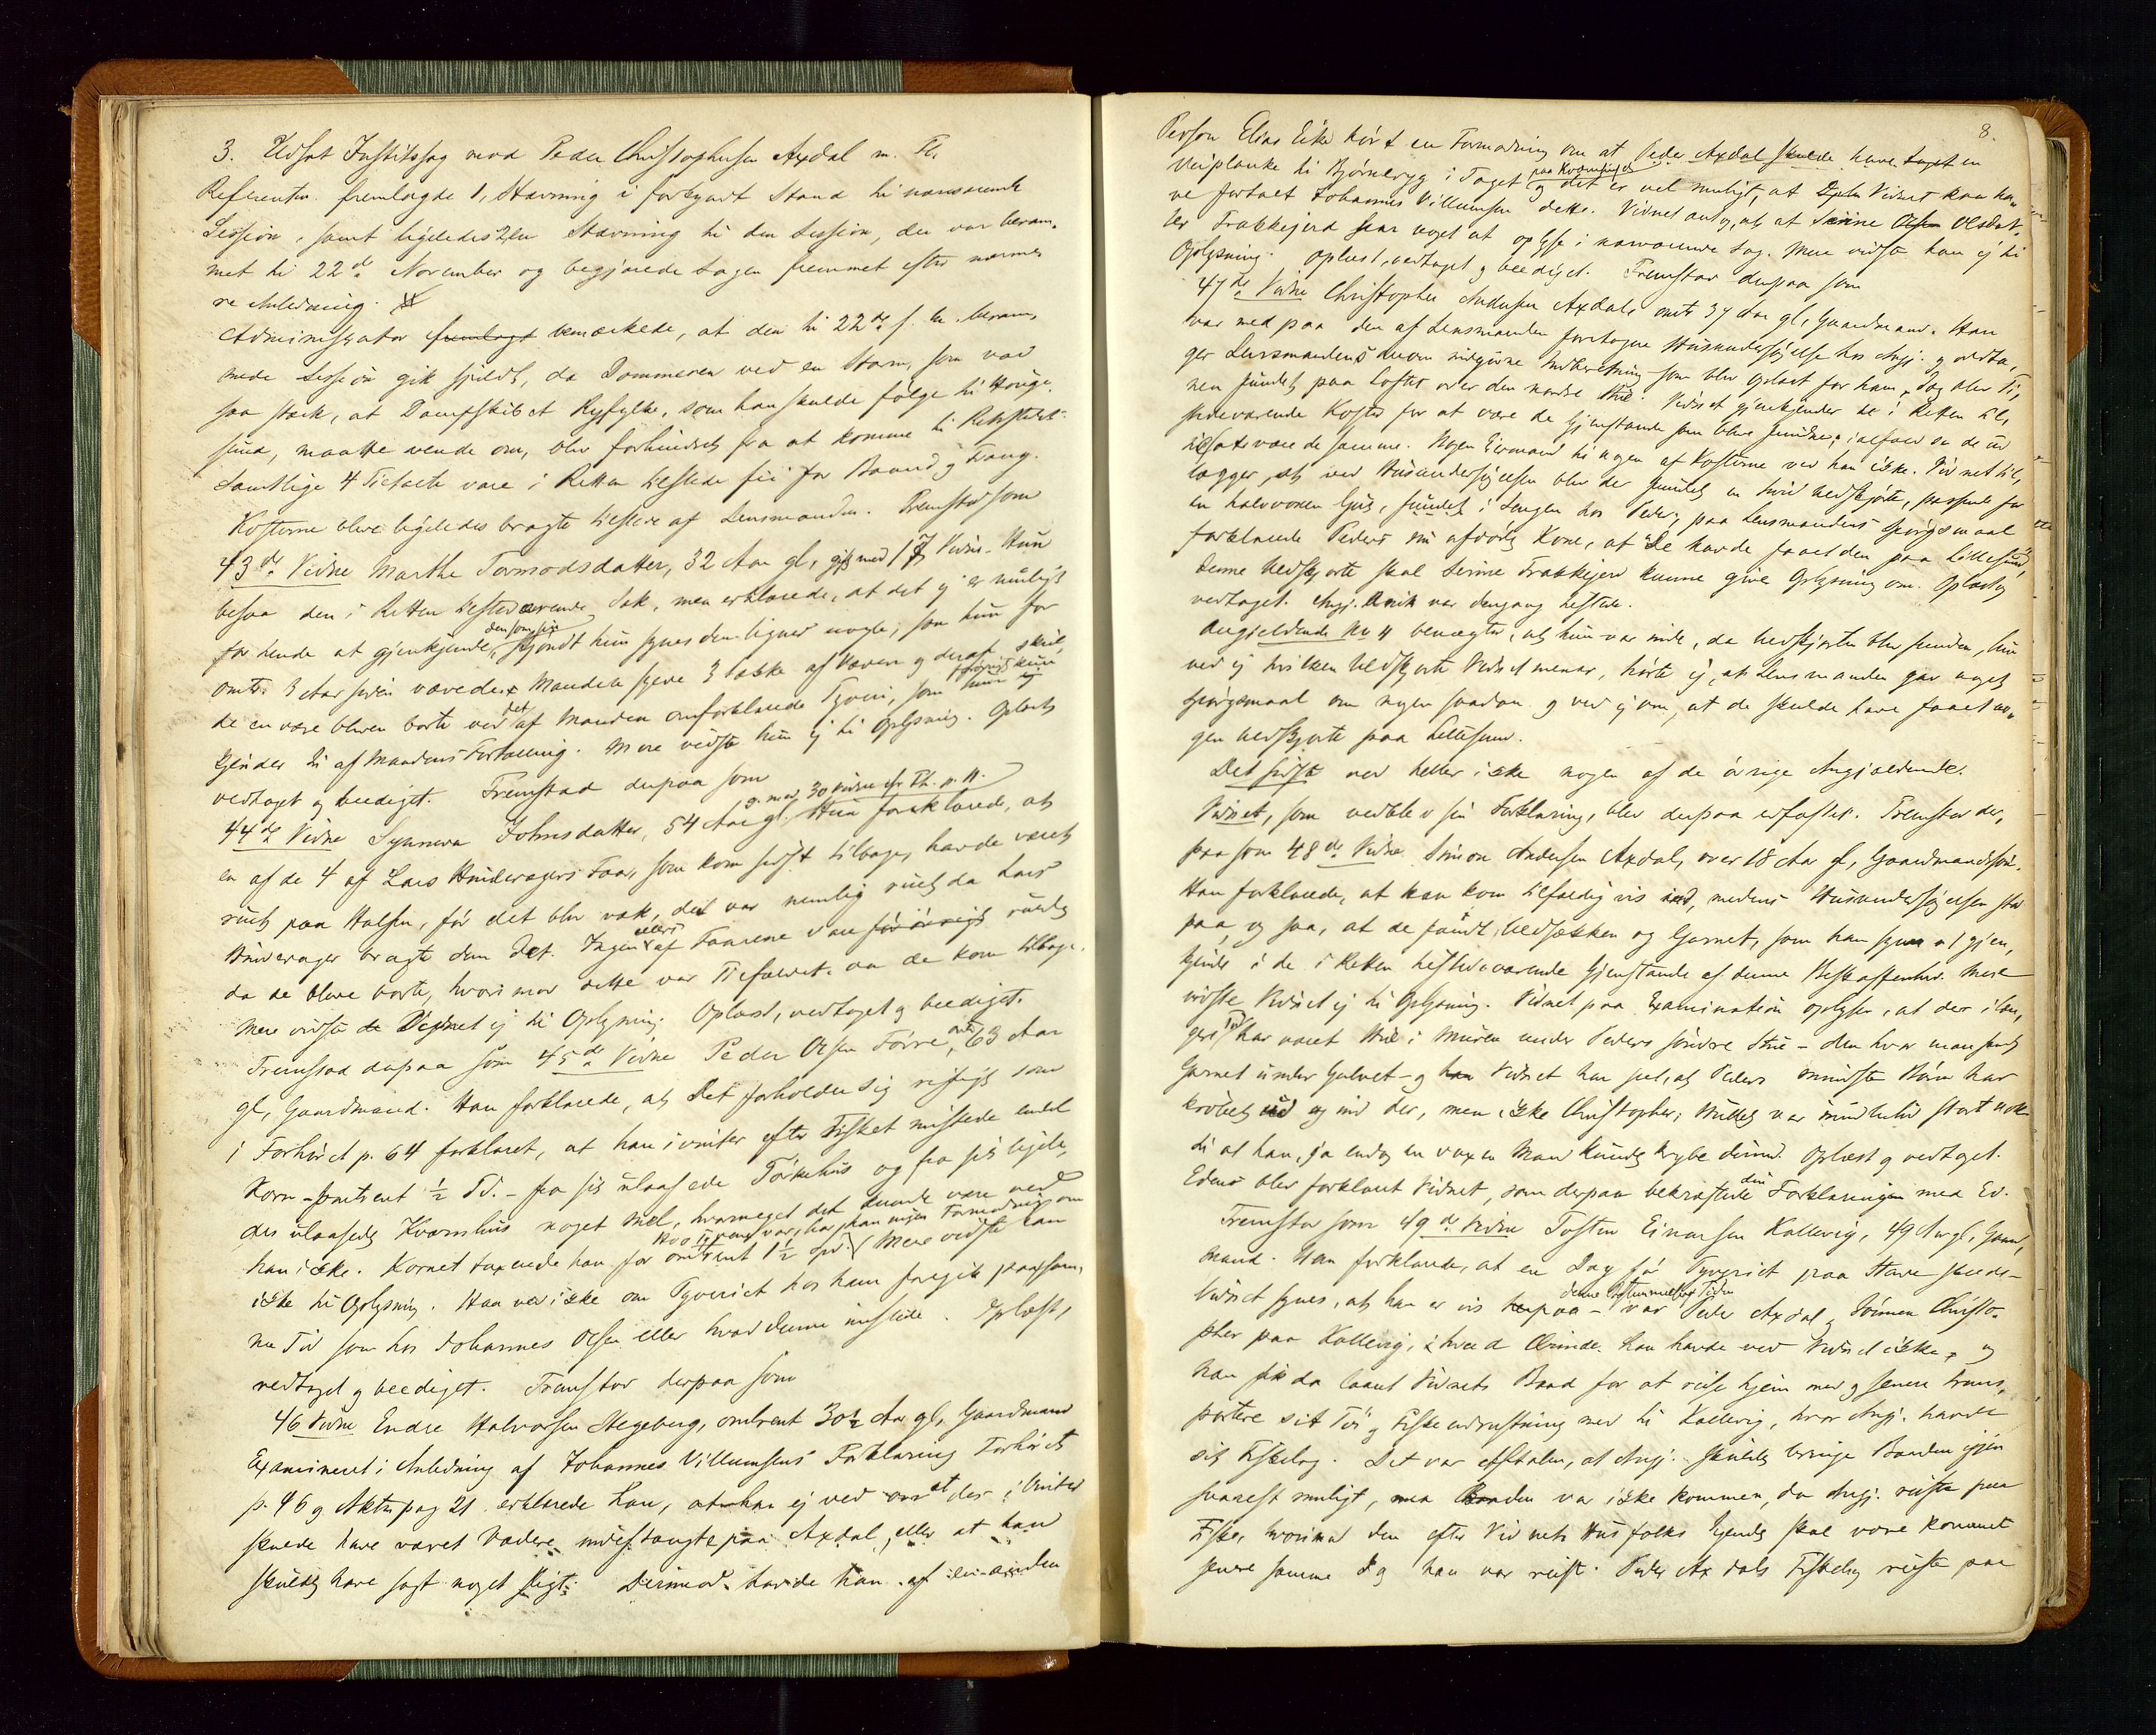 3. Udsat Justitssag mod Peder Christophersen Axdal m. Fl.
Referenten fremlagde 1, Stævning i forkyndt Stand til nærværende
Session, samt ligeledes 2den Stævning til den Session, der var beram-
met til 22d November og begjærede Sagen fremmet efter nærme-
re Anledning.
Administrator fremlagt bemærkede, at den til 22de f. M. beram-
mede Session gik spildt, da Dommeren ved en Storm, som var
saa stærk, at Dampskibet Ryfylke, som han skulde følge til Hauge-
sund, maatte vende om, blev forhindret fra at komme til Retsstedet.
Samtlige 4 Tiltalte vare i Retten tilstede fri for Baand og Tvang.
Kosterne bleve ligeledes bragte tilstede af Lensmanden. Fremstod som
43de Vidne Marthe Tormodsdatter, 32 Aar gl, gift med 17 Vidne. Hun
besaa den i Retten tilstedeværende Sæk, men erklærede, at det ej er muligt
for hende at gjenkjende den som sin, skjøndt hun synes den ligner nogle, som hun for
omtr. 3 Aar siden vævede. Manden syede 3 Sække af Væven og deraf skul-
de en være bleven borte ved det af Manden omforklarede Tyveri, som forøvrigt hun ej kun
kjender til af Mandens Fortælling. Mere vidste hun ej til Oplysning. Oplæst,
vedtaget og beediget. Fremstod derpaa som
44de Vidne Synneva Johnsdatter, 54 Aar gl. g. med 30 Vidne cfr Fh. p. 11. Hun forklarede, at
en af de 4 af Lars Hinderagers Faar, som kom sidst tilbage, havde været
ruet paa Halsen, før det blev væk, det var nemlig ruet da Lars
Hinderager bragte dem det. Ingen ellers af Faarene vare forøvrigt ruede
da de bleve borte, hvorimod dette var Tilfældet da de kom tilbage.
Mere vidste de Vidnet ej til Oplysning. Oplæst, vedtaget og beediget.
Fremstod derpaa som 45de Vidne Peder Olsen Førre, omtr. 63 Aar
gl, Gaardmand. Han forklarede, at Det forholder sig rigtigt som
i Forhøret p. 64 forklaret, at han ivinter efter Fisket mistede endel
Korn – omtrent ½ Td. – fra sit ulaasede Tørkehus og fra sit ligele-
des ulaasede Kværnhus noget Mel, hvormeget det kunde være ved
han ikke. Kornet taxerede han for omtrent 1½ Spd. Hvo Tyven var, har han ingen Formodning om Mere vidste han
ikke til Oplysning. Han ved ikke om Tyveriet hos ham foregik paa sam-
me Tid som hos Johannes Olsen eller hvad denne mistede. Oplæst,
vedtaget og beediget. Fremstod derpaa som
46 Vidne Endre Halvorsen Stegeberg, omtrent 30½ Aar gl, Gaardmand
Examineret i Anledning af Johannes Villumsens Forklaring Forhørets
p. 46 og Akten pag 21 erklærede han, at han ej ved om at der i Vinter
skulde have været Vædere indestængte paa Axdal, eller at han
skulde have sagt noget sligt. Derimod havde han af en anden
8.
Person Elias Eike hørt en Formodning om at Peder Axdal skulde have taget en
Veiplanke til Bjørneryg i Taget paa Kværnhuset og det er vel muligt, at Vidnet kan ha-
ve fortalt Johannes Villumsen dette. Vidnet antog, at Serine Olsen Olsdat-
ter Frakkejerd har noget at oplyse i nærværende Sag. Mere vidste han ej til
Oplysning. Oplæst, vedtaget og beediget. Fremstod derpaa som
47de Vidne Christopher Andersen Axdal, omtr. 37 Aar gl, Gaardmand. Han
var med paa den af Lensmanden foretagne Husundersøgelse hos Angj. og vedta-
ger Lensmandens herom indgivne Indberetning som blev oplæst for ham, Dog blev Ti-
nen fundet paa Loftet over den nordre Stue. Vidnet gjenkjender de i Retten til-
stedeværende Koster for at være de Gjenstande som bleve fundne; ialfald se de ud
til at være de samme. Nogen Eiermand til nogen af Kosterne ved han ikke. Vidnet til-
lægger, at ved Husundersøgelsen blev der fundet en hvid Uldskjorte, passende for
en halvvoxen Gut, fundet i Sengen hos Peder, paa Lensmandens Spørgsmaal
forklarede Peders nu afdøde Kone, at De havde faaet den paa Lillesund,
Denne Uldskjorte skal Serine Frakkejerd kunne give Oplysning om. Oplæst og
vedtaget. Angj. Anik var dengang tilstede.
Angjældende No 4 benægter, at hun var inde, da Uldskjorten blev funden, hun
ved ej hvilken Uldskjorte Vidnet mener, hørte ej, at Lensmanden gav noget
Spørgsmaal om nogen saadan og ved ej om, at de skulde have faaet no-
gen Uldskjorte paa Lillesund.
Det sidste ved heller ikke nogen af de øvrige Angjældende.
Vidnet, som vedblev sin Forklaring, blev derpaa edfæstet. Fremstod der-
paa som 48de Vidne Simon Andersen Axdal, over 18 Aar gl, Gaardmandssøn.
Han forklarede, at han kom tilfældigvis ind, medens Husundersøgelsen stod
paa, og saa, at de fandt Uldsækken og Garnet, som han synes at gjen-
kjende i de i Retten tilstedeværende Gjenstande af denne Beskaffenhed. Mere
vidste Vidnet ej til Oplysning. Vidnet paa Examination oplyser, at der i læn-
gere Tid har været Hul i Muren under Peders søndre Stue – den hvor man fandt
Garnet under Gulvet – og han Vidnet har set, at Peders mindste Børn har
krøbet ud og ind der, men ikke Christopher; Hullet var imidlertid stort nok
til at han, ja endog en voxen Mand kunde krybe derind. Oplæst og vedtaget.
Edens blev forklaret Vidnet, som derpaa bekræftede sin Forklaringen med Ed.
Fremstod som 49de Vidne Tosten Einarsen Kallevig, 49 Aar gl, Gaard-
mand. Han forklarede, at en Dag før Tyveriet paa Stave skede –
Vidnet synes, at han er vis herpaa – denne Bestemmelse af Tiden var Peder Axdal og Sønnen Christo-
pher paa Kallevig, i hvad Ærinde han havde ved Vidnet ikke, og
han fik da laant Vidnets Baad for at reise hjem med og senere trans-
portere sit Tøi og Fiskeudrustning med til Kallevig, hvor Angj. havde
sit Fiskelag. Det var Aftalen, at Angj. skulde bringe Baaden igjen
snarest muligt, men Baaden var ikke kommen, da Angj. reiste paa
Fiske, hvorimod den efter Vidnets Husfolks Sigende skal være kommet
senere samme Dag han var reist. Peder Axdals Fiskelag reiste paa